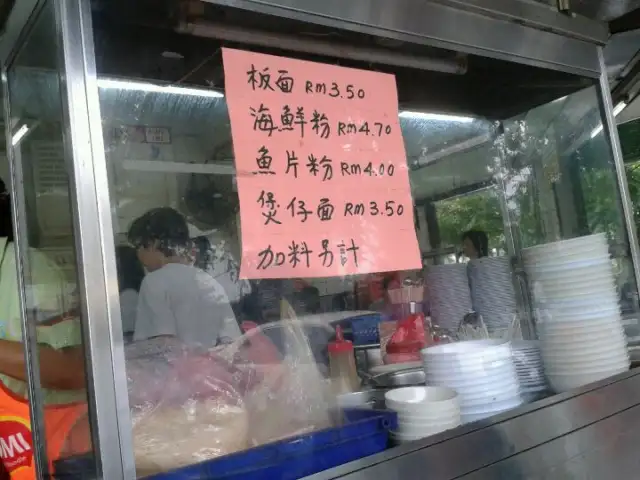 板面 RM3.50
海鮮粉 RM4.70
魚片粉 RM4.00
煲仔面 RM3.50
加料另計